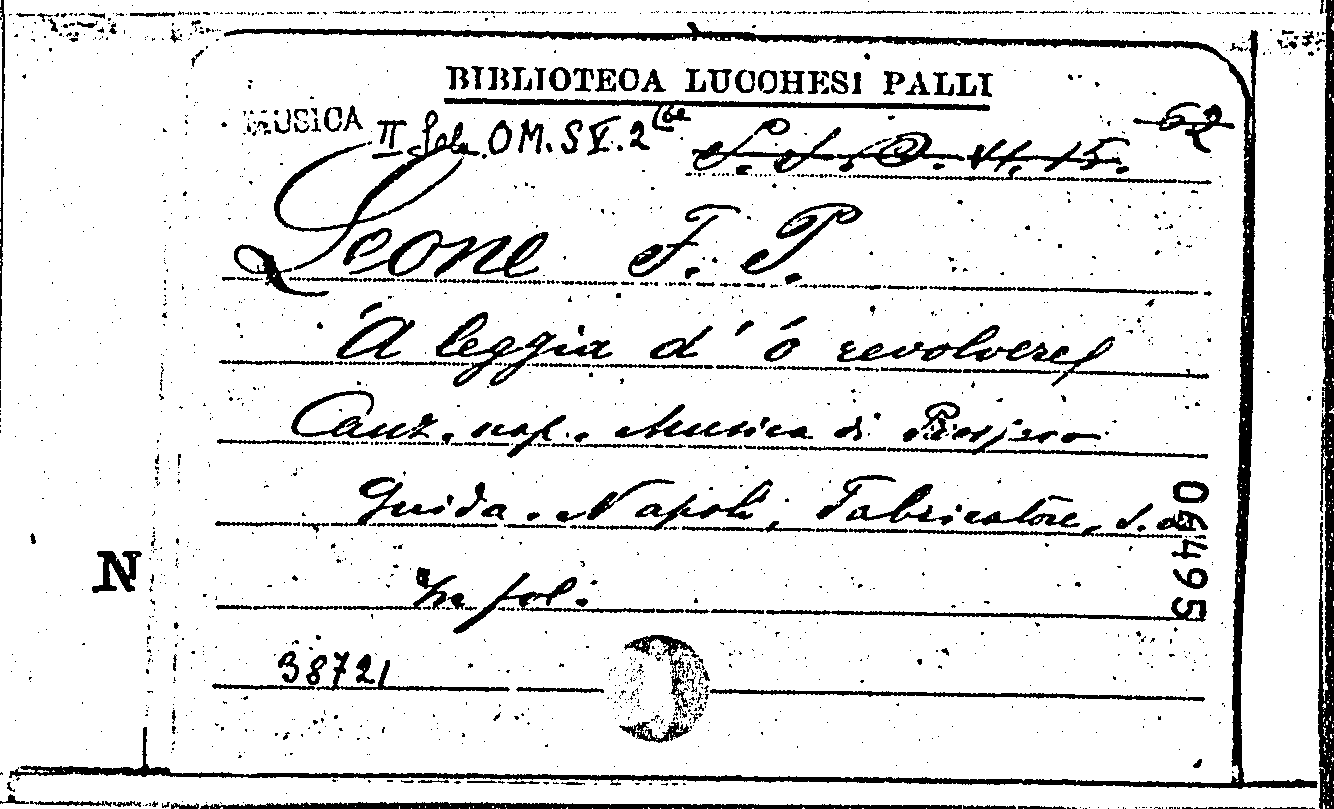 BIBLIOTECA LUCCHESI PALLI
MUSICA II Sala OM. S V. 2 (62
S. S. O. VI. 15. 62
Leone F. P.
'A leggia d' 'o revolvere
Canz. nap. Musica di Prospero
Guida. Napoli, Fabricatore, s.a.
In fol.
38721
06495
N